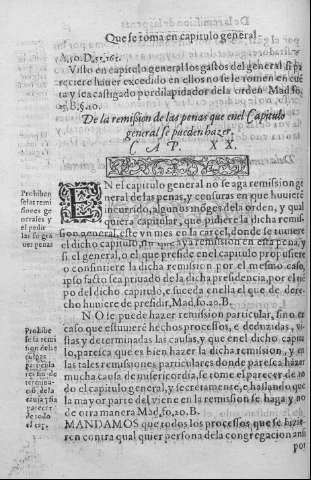 Que se toma en capitulo general
A.50.D.51.161.
Visto en capitulo general los gastos del general si pa
reciere hauer excedido en ellos no se le tomen en cuẽ
ta y sea castigado por dilapidador de la orden Mad. fo.
25.B.§.10.
De la remission de las penas que en el Capitulo
general se pueden hazer.
CAP. XX.
Prohiben
se las remi
siones ge
nerales y
el pedir
las so gra
ues penas
EN el capitulo general no se aga remission ge
neral de las penas, y censuras en que huuierẽ
incurrido, algunos mõges de la orden, y qual
quiera capitular, que pidiere la dicha remis-
sion general, este vn mes en la carcel, donde se tuuiere
el dicho capitulo, sin que aya remission en esta pena, y
si el general, o el que preside en el capitulo propusiere
o consintiere la dicha remission por el mesmo caso,
ipso facto sea priuado de la dicha presidencia, por el tiẽ
po del dicho capitulo, e suceda en ella el que de dere-
cho huuiere de presidir, Mad. fo. 20. B.
Prohibe
se la remi
sion de las
culpas
particula
res sin de
termina-
ciõ, de la
causa y sin
parecer
de todo
el cap.
NO se puede hazer remission particular, sino en
caso que estuuierẽ hechos processos, e deduzidas, vi-
stas y determinadas las causas, y que en el dicho capitu
lo, paresca que es bien hazer la dicha remission, y en
las tales remissiones particulares donde paresca hazer
mucha causa de misericordia, se tome el parecer de to
do el capitulo general, y secretamente, e hallando que
la mayor parte del, viene en la remission se haga y no
de otra manera Mad, fo, 20. B.
MANDAMOS que todos los processos que se hizie
ren contra qual quier persona de la congregacion ansi
por